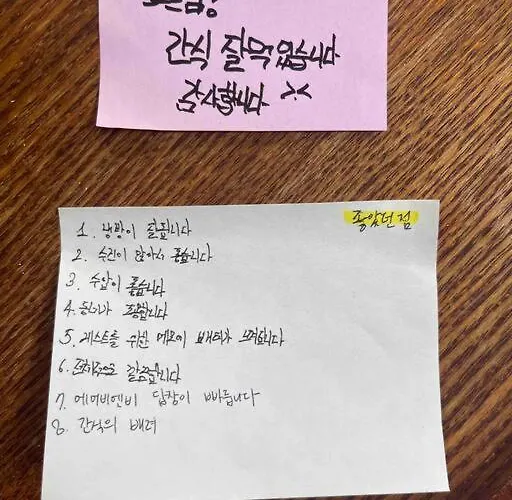 간식 잘먹었습니다
감사합니다 ^^
좋았던 점
1. 냉방이 잘됩니다
2. 수건이 많아서 좋습니다
3. 수압이 좋습니다
4. 합니다
5. 게스트를 위한 메모에 배려가 느껴집니다
6. 전체적으로 깔끔합니다
7. 에어비엔비 답장이 빠릅니다
8. 간식의 배려